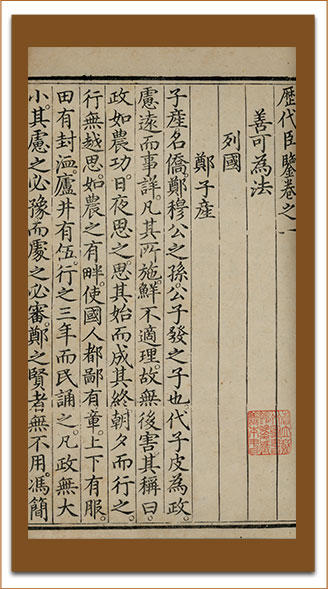 歷代臣鑒卷之一
善可為法
列國
鄭子產
子產名僑鄭穆公之孫。公子發之子也。代子皮為政。
慮遠而事詳。凡其所施。鮮不適理。故無後害。其稱曰。
政如農功。日夜思之。思其始而成其終。朝夕而行之。
行無越思。如農之有畔。使國人都鄙有章。上下有服。
田有封洫。廬井有伍。行之三年而民誦之。凡政無大
小。其慮之必豫。而處之必審。鄭之賢者無不用。馮簡